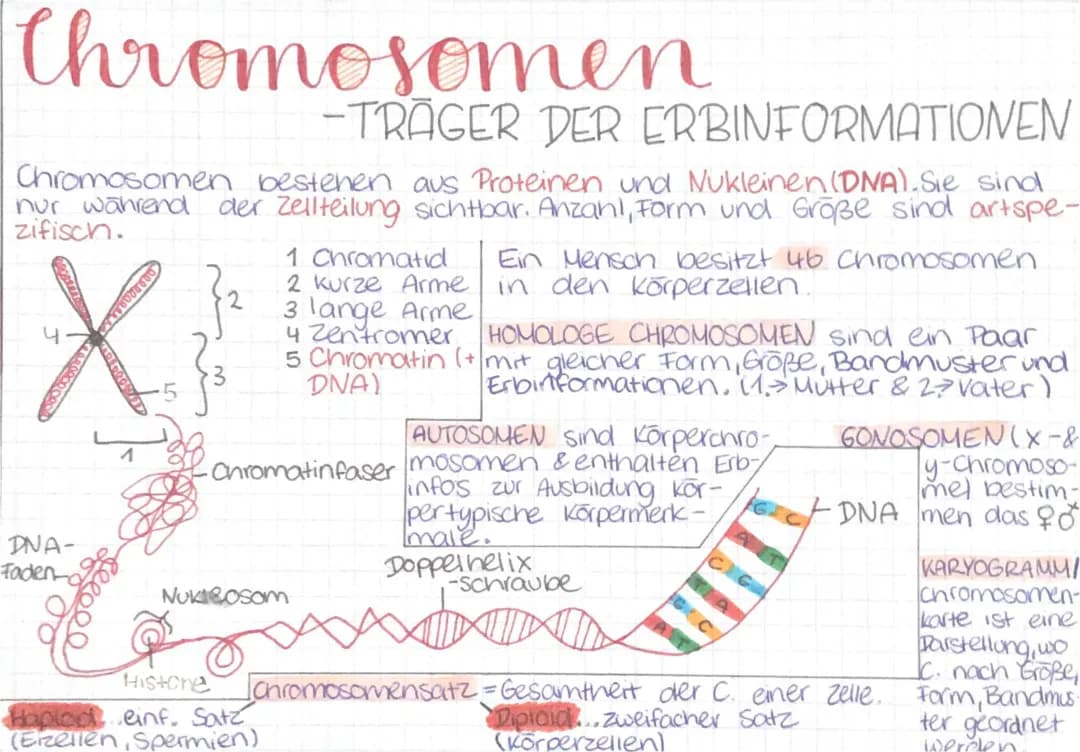 Chromosomen
-TRÄGER DER ERBINFORMATIONEN
Chromosomen bestehen aus Proteinen und Nukleinen (DNA). Sie sind
nur während der Zellteilung sichtbar. Anzahl, Form und Größe sind artspe-
zifisch.
1 Chromatid
2 kurze Arme
3 lange Arme
4 Zentromer
5 Chromatin (+
DNA)
2
4
3
5
1
Ein Mensch besitzt 46 Chromosomen
in den Körperzellen.
HOMOLOGE CHROMOSOMEN sind ein Paar
mit gleicher Form, Größe, Bandmuster und
Erbinformationen. (1.→ Mutter & 2.→ Vater)
AUTOSOMEN sind Körperchro-
mosomen & enthalten Erb-
infos zur Ausbildung kör-
pertypische Körpermerk-
male.
GONOSOMEN (X-&
y-Chromoso-
me) bestim-
men das ♀♂
Chromatinfaser
DNA-
Faden
Nukleosom
Histone
Doppelhelix
-schraube
DNA
G C
A T
C G
T A
G C
A T
KARYOGRAMM/
Chromosomen-
karte ist eine
Darstellung, wo
C. nach Größe,
Form, Bandmus-
ter geordnet
werden
Chromosomensatz = Gesamtheit der C. einer Zelle.
Haploid...einf. Satz
(Eizellen, Spermien)
Diploid...zweifacher Satz
(Körperzellen)